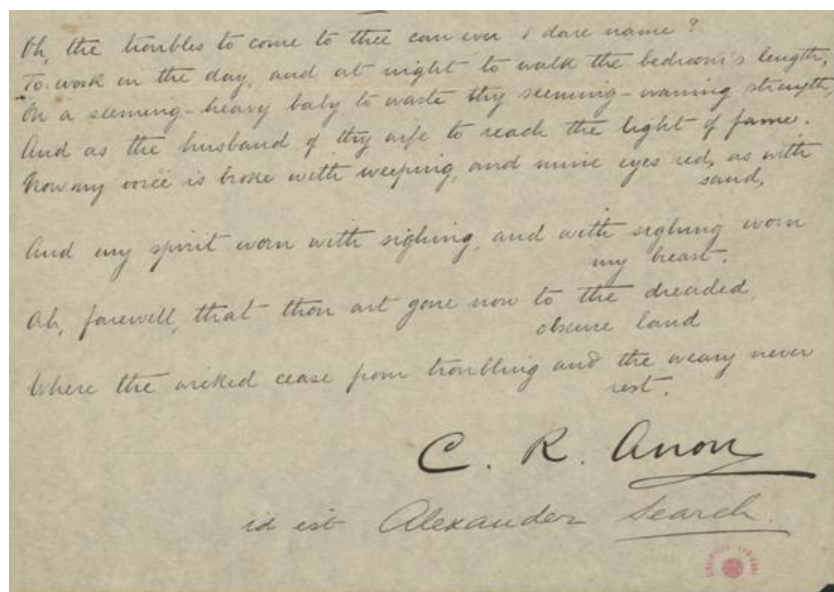 Oh, the troubles to come to thee can ever I dare name?
To work in the day, and at night to walk the bedroom's length,
On a seeming-heavy baby to waste thy seeming-waning strength,
And as the husband of thy wife to reach the light of fame.
Now my voice is broke with weeping, and mine eyes red, as with
sand,
And my spirit worn with sighing, and with sighing worn
my breast.
Ah, farewell, that thou art gone now to the dreaded,
obscure land
Where the wicked cease from troubling and the weary never
rest.
C. R. Anon
id est Alexander Search.